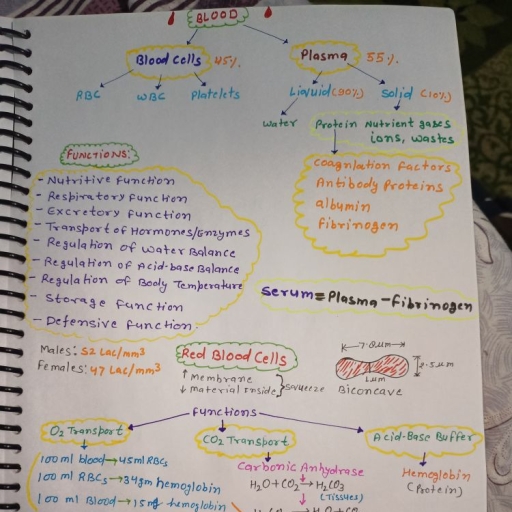 BLOOD
Blood Cells 45%.
Plasma 55%.
RBC WBC Platelets
Liquid (90%) Solid (10%)
Water
Protein Nutrient gases
ions, wastes
Coagulation Factors
Antibody Proteins
albumin
Fibrinogen
FUNCTIONS:
- Nutritive Function
- Respiratory Function
- Excretory Function
- Transport of Hormones/Enzymes
- Regulation of Water Balance
- Regulation of Acid-base Balance
- Regulation of Body Temperature
- Storage Function
- Defensive Function.
Serum = Plasma - Fibrinogen
Males: 52 LAC/mm³
Females: 47 LAC/mm³
Red Blood Cells
↑ Membrane
↓ material inside } squeeze
2.5 µm
1 µm
Biconcave
Functions
O2 Transport
CO2 Transport
Acid-Base Buffer
100 ml blood → 45ml RBCs
100 ml RBCs → 34gm hemoglobin
100 ml Blood → 15mg hemoglobin
Carbonic Anhydrase
H2O + CO2 → H2CO3
(Tissues)
Hemoglobin
(Protein)